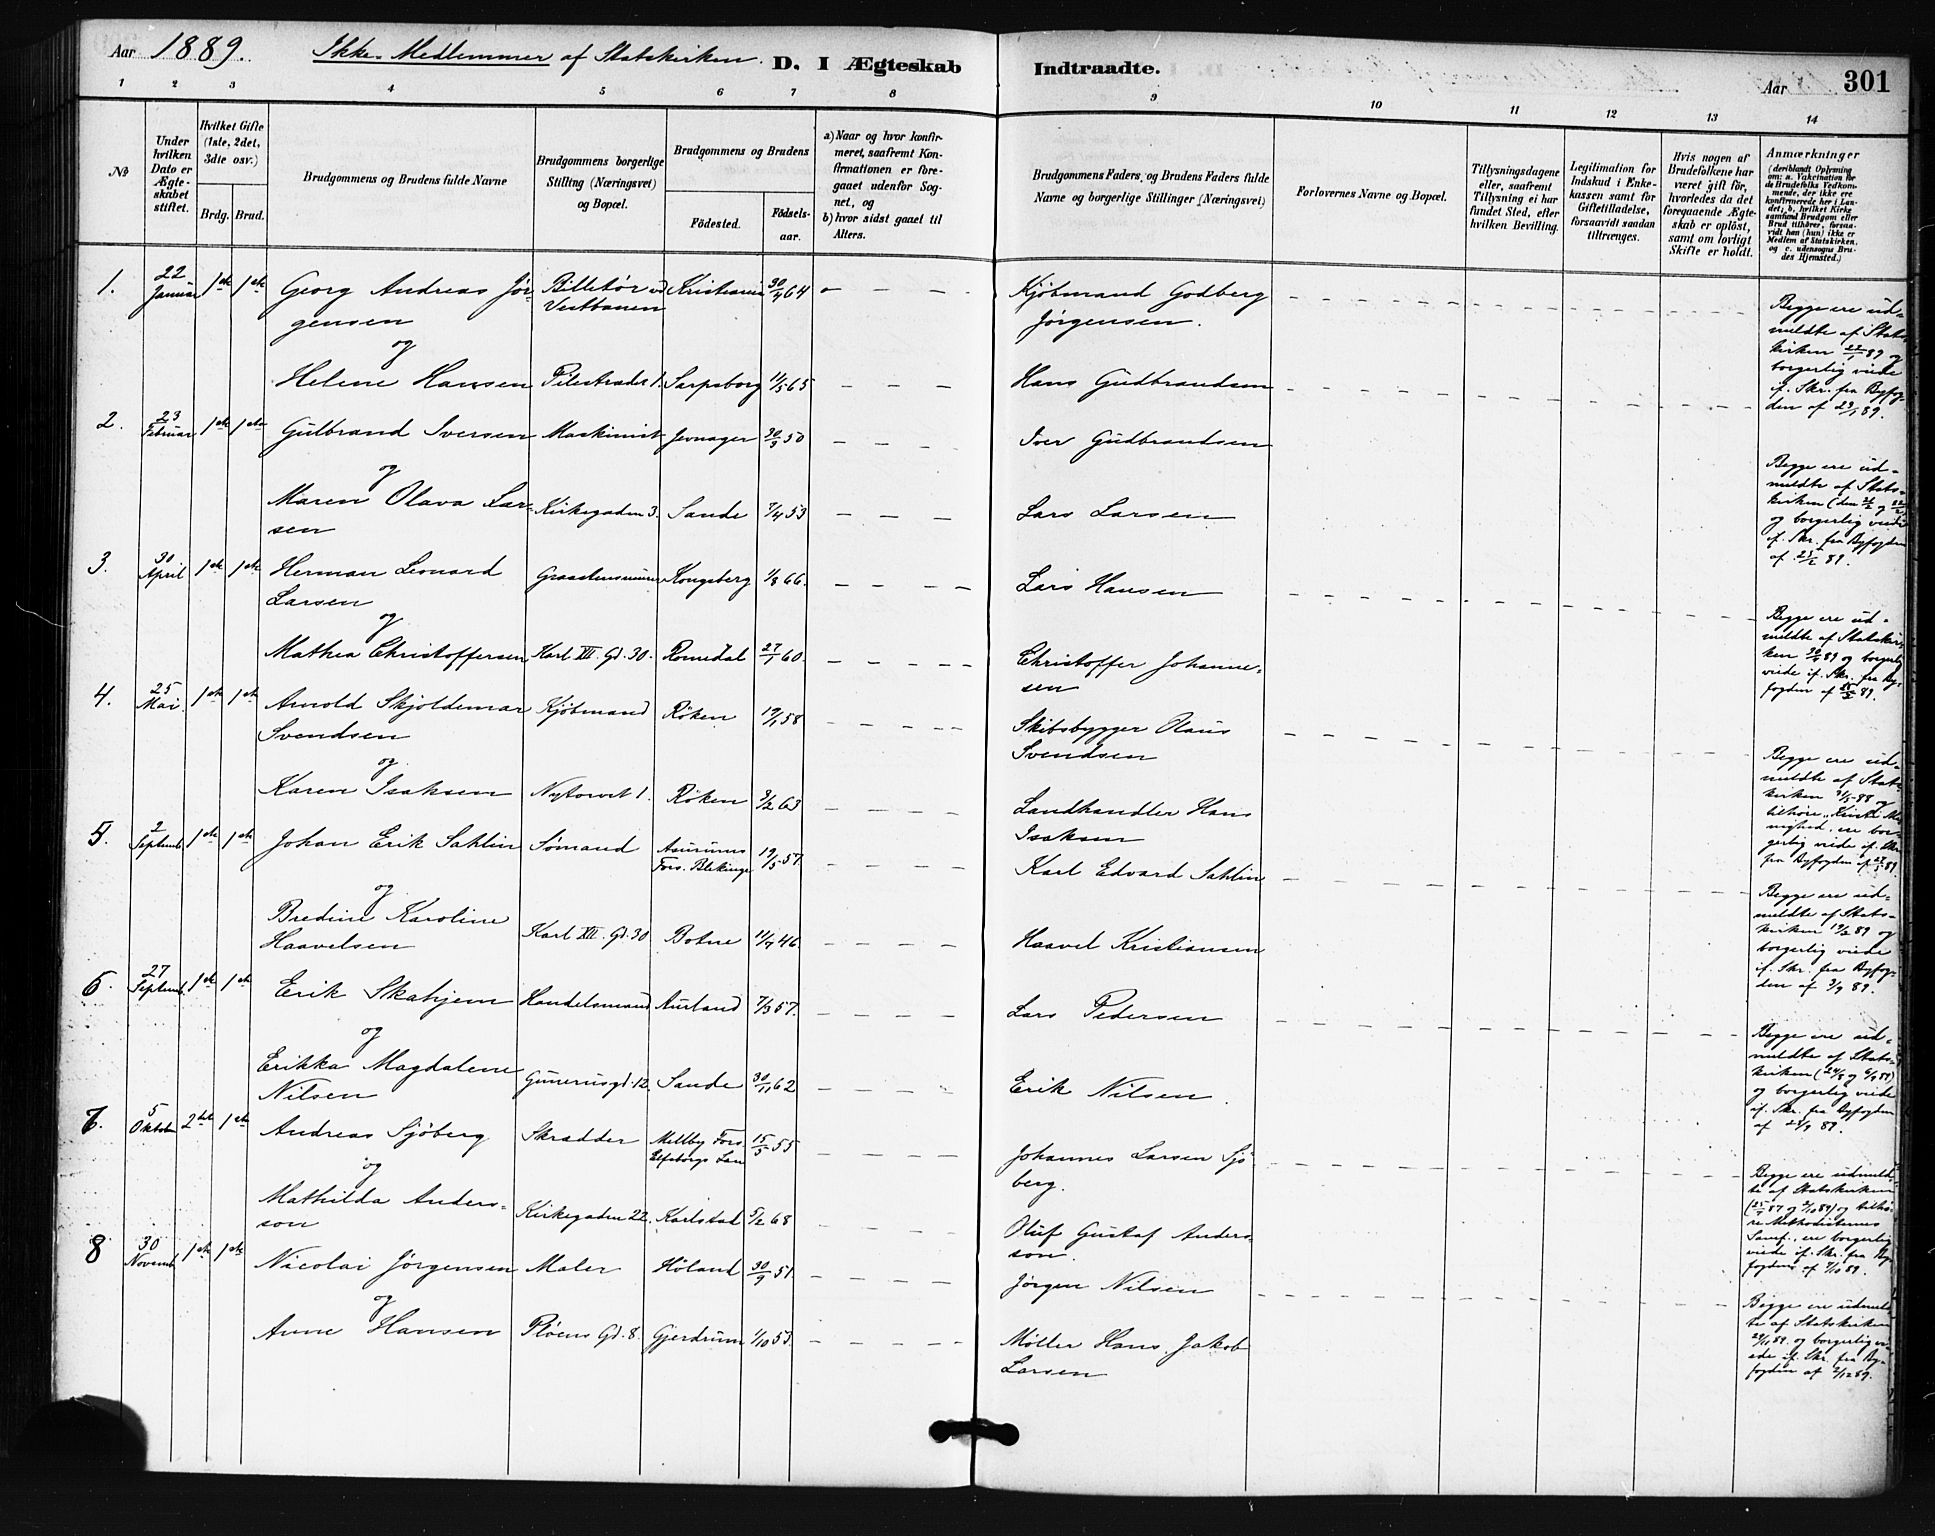 Aar 1889. Ikke-Medlemmer af Statskirken. D. I Ægteskab Indtraadte. Aar 301
1 2 3 4 5 6 7 8 9 10 11 12 13 14
№
Under hvilken Dato er Ægteskabet stiftet.
Hvilket Gifte (1ste, 2det, 3die osv.)
Brdg. Brud.
Brudgommens og Brudens fulde Navne
Brudgommens borgerlige Stilling (Næringsvei) og Bopæl.
Brudgommens og Brudens
Fødested. Fødselsaar.
a) Naar og hvor konfirmeret, saafremt Konfirmationen er foregaaet udenfor Sognet, og
b) hvor sidst gaaet til Alters.
Brudgommens Faders, og Brudens Faders fulde Navne og borgerlige Stillinger (Næringsvei)
Forlovernes Navne og Bopæl.
Tillysningsdagene eller, saafremt Tillysning ei har fundet Sted, efter hvilken Bevilling.
Legitimation for Indskud i Enkekassen samt for Giftetilladelse, forsaavidt saadan tiltrænges.
Hvis nogen af Brudefolkene har været gift før, hvorledes da det foregaaende Ægteskab er opløst, samt om lovligt Skifte er holdt.
Anmærkninger (deriblandt Oplysning om: a. Vakcination for de Brudefolks Vedkommende, der ikke ere konfirmerede her i Landet; b. hvilket Kirkesamfund Brudgom eller Brud tilhører, forsaavidt han (hun) ikke er Medlem af Statskirken, og c. udensogns Brudes Hjemsted.)
1. 22 Januar 1ste 1ste Georg Andreas Jørgensen Billetør ved Vestbanen Kristiania 30/4 64 Kjøbmand Godberg Jørgensen.
og
Helene Hansen Pilestrædet 1. Sarpsborg 11/5 65 Hans Gudbrandsen
Begge ere udmeldte af Statskirken 22/1 89 og borgerlig viede if. Skr. fra Byfogden af 23/1 89.
2. 23 Februar 1ste 1ste Gulbrand Iversen Maskinist Jevnager 30/3 50 Iver Gudbrandsen
og
Maren Olava Larsen Kirkegaden 3. Sande 7/4 53 Lars Larsen
Begge ere udmeldte af Statskirken og borgerlig viede if. Skr. fra Byfogden af 25/2 89.
3. 30 April 1ste 1ste Herman Leonard Larsen Kongsberg 1/8 66. Lars Hansen
og
Mathea Christoffersen Karl XII. Gd. 30. Romedal 27/1 60. Christoffer Johannesen
Begge ere udmeldte af Statskirken 30/4 89 og borgerlig viede if. Skr. fra Byfogden af 89.
4. 25 Mai 1ste 1ste Arnold Skjoldemar Svendsen Kjøbmand Røken 19/1 58 Skibsbygger Olaus Svendsen
og
Karen Isaksen Nytorvet 1. Røken 3/2 63 Landhandler Hans Isaksen
Begge ere udmeldte af Statskirken og tilhøre ere borgerlig viede if. Skr. fra Byfogden af 27/5 89.
5. 2 Septemb. 1ste 1ste Johan Erik Sahlin Sømand Asarums Fors. Blekinge 19/5 57. Karl Edvard Sahlin
og
Bredine Karoline Haavelsen Karl XII. Gd. 30 Botne 11/9 46. Haavel Kristiansen
Begge ere udmeldte af Statskirken 19/2 89 og borgerlig viede if. Skr. fra Byfogden af 3/9 89.
6. 27 Septemb. 1ste 1ste Erik Skahjem Handelsmand Aurland 7/3 57. Lars Pedersen
og
Erikka Magdalene Nilsen Gunerusgd. 12. Sande 30/11 62 Erik Nilsen.
Begge ere udmeldte af Statskirken (24/8 og 6/9 89) og borgerlig viede if. Skr. fra Byfogden af 89.
7. 5 Oktober 2det 1ste Andreas Sjöberg Skrædder Mellby Fors. Elfsborgs Län 15/5 55 Johannes Larsen Sjöberg.
og
Mathilda Andersson Kirkegaden 22. Karlstad 5/2 68 Oluf Gustaf Andersson.
Begge ere udmeldte af Statskirken og tilhøre Methodisternes Samf., ere borgerlig viede if. Skr. fra Byfogden af 7/10 89.
8 30 Novemb. 1ste 1ste Nicolai Jørgensen Maler Høland 30/9 51 Jørgen Nilsen
og
Anne Hansen Pløens Gd. 8. Gjerdrum 1/10 53. Møller Hans Jakob Larsen
Begge ere udmeldte af Statskirken 29/11 89. og borgerlig viede if. Skr. fra Byfogden af 2/12 89.